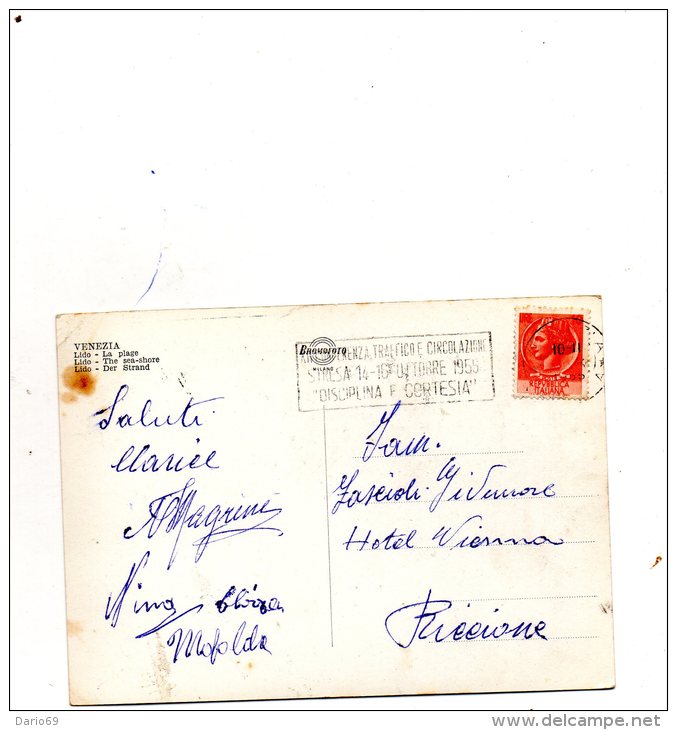 VENEZIA
Lido - La plage
Lido - The sea-shore
Lido - Der Strand
BROMOFOTO
MILANO
CONFERENZA TRAFFICO E CIRCOLAZIONE
STRESA 14-16 OTTOBRE 1955
"DISCIPLINA E CORTESIA"
REPUBBLICA
ITALIANA
Saluti
Magrini
Nino
Mafalda
Fam.
Hotel Vienna
Riccione
Dario69
delcampe.net